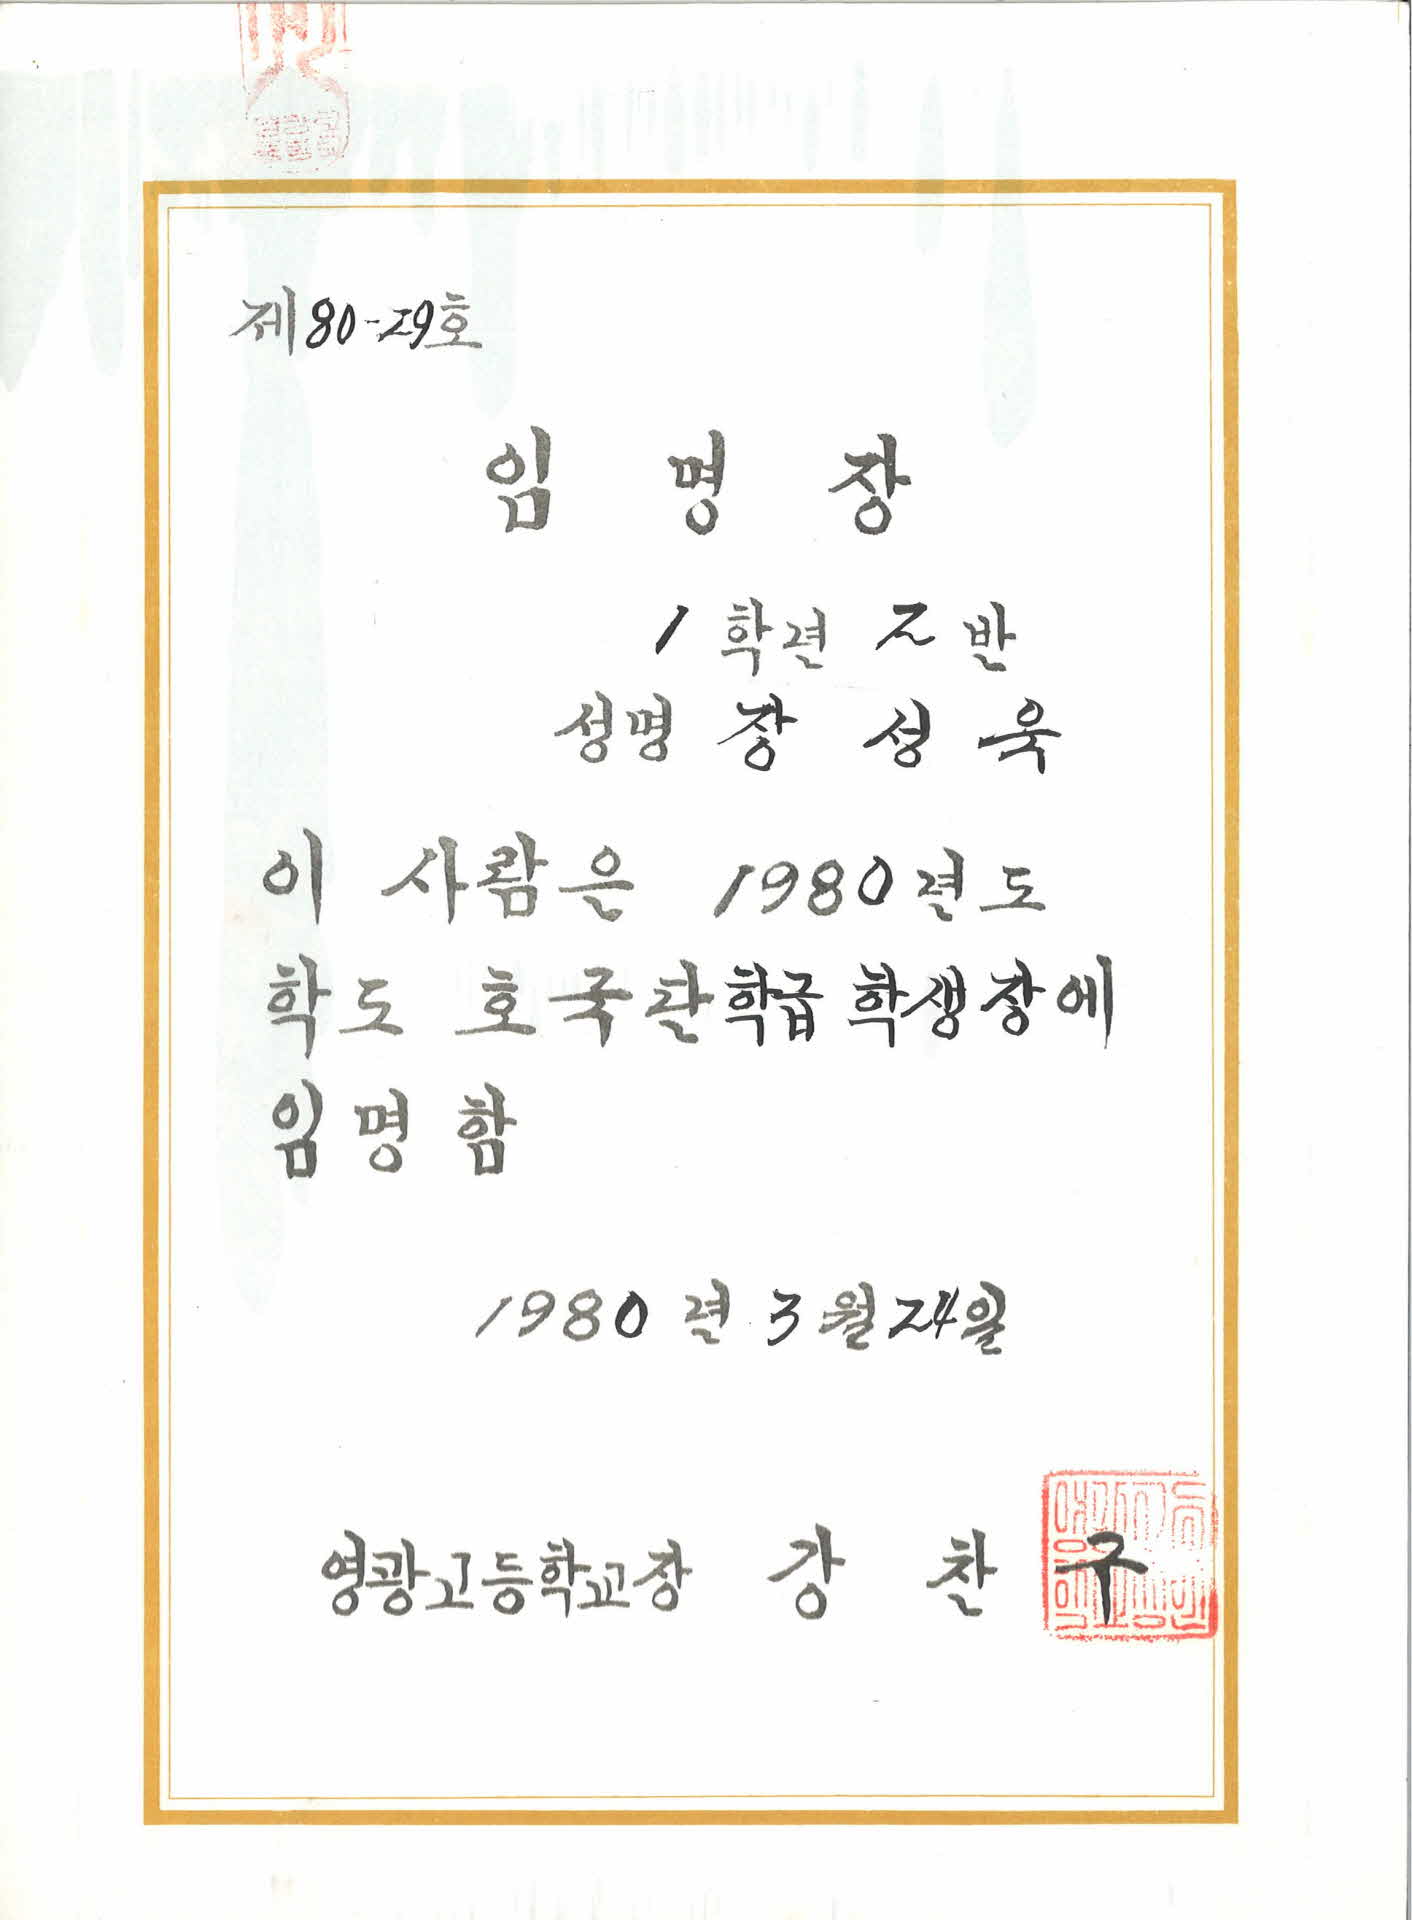 제80-29호
임 명 장
1 학년 2 반
성명 장 성 욱
이 사람은 1980년도
학도 호국단 학급 학생장에
임명함
1980년 3월 24일
영광고등학교장 강 찬 구